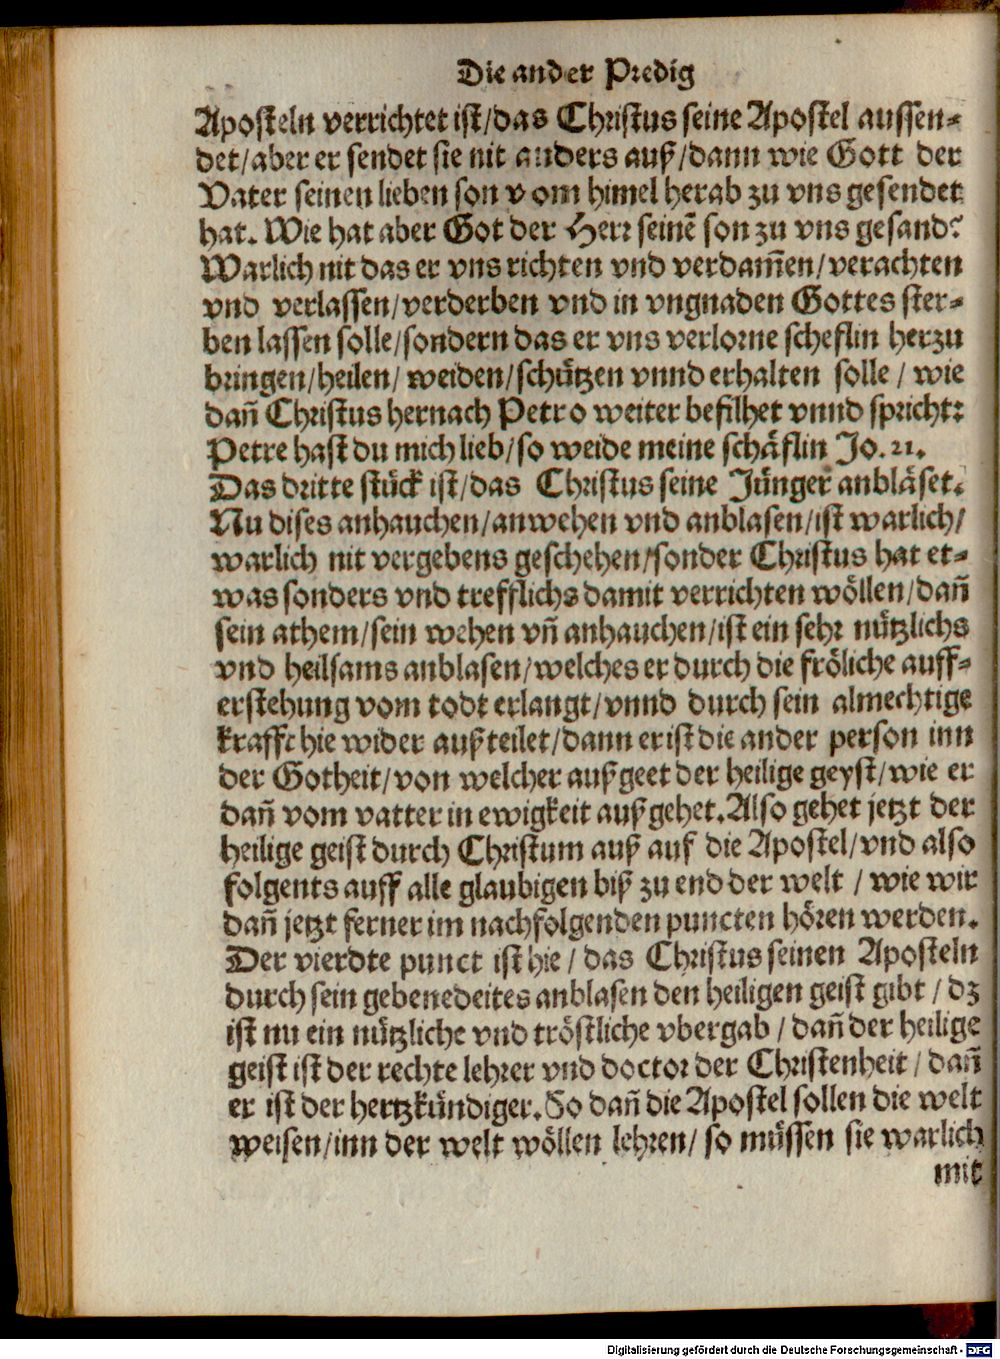 Die ander Predig
Aposteln verrichtet ist/das Christus seine Apostel aussen⸗
det/aber er sendet sie nit anders auß/dann wie Gott der
Vater seinen lieben son vom himel herab zu vns gesendet
hat. Wie hat aber Got der Herr seinē son zu vns gesand?
Warlich nit das er vns richten vnd verdam̄en/verachten
vnd verlassen/verderben vnd in vngnaden Gottes ster⸗
ben lassen solle/sondern das er vns verlorne scheflin herzu
bringen/heilen/ weiden/schuͤtzen vnnd erhalten solle / wie
dañ Christus hernach Petro weiter befilhet vnnd spricht:
Petre hast du mich lieb/so weide meine schaͤflin Jo. 21.
Das dritte stuͤck ist/das Christus seine Juͤnger anblaͤset.
Nu dises anhauchen/anwehen vnd anblasen/ist warlich/
warlich nit vergebens geschehen/sonder Christus hat et⸗
was sonders vnd trefflichs damit verrichten woͤllen/dañ
sein athem/sein wehen vñ anhauchen/ist ein sehr nuͤtzlichs
vnd heilsams anblasen/welches er durch die froͤliche auff⸗
erstehung vom todt erlangt/vnnd durch sein almechtige
krafft hie wider außteilet/dann er ist die ander person inn
der Gotheit/von welcher außgeet der heilige geyst/wie er
dañ vom vatter in ewigkeit außgehet. Also gehet jetzt der
heilige geist durch Christum auß auf die Apostel/vnd also
folgents auff alle glaubigen biß zu end der welt / wie wir
dañ jetzt ferner im nachfolgenden puncten hoͤren werden.
Der vierdte punct ist hie / das Christus seinen Aposteln
durch sein gebenedeites anblasen den heiligen geist gibt / dz
ist nu ein nuͤtzliche vnd troͤstliche vbergab / dañ der heilige
geist ist der rechte lehrer vnd doctor der Christenheit / dañ
er ist der hertzkuͤndiger. So dañ die Apostel sollen die welt
weisen/inn der welt woͤllen lehren/ so muͤssen sie warlich
mit
Digitalisierung gefördert durch die Deutsche Forschungsgemeinschaft - DFG